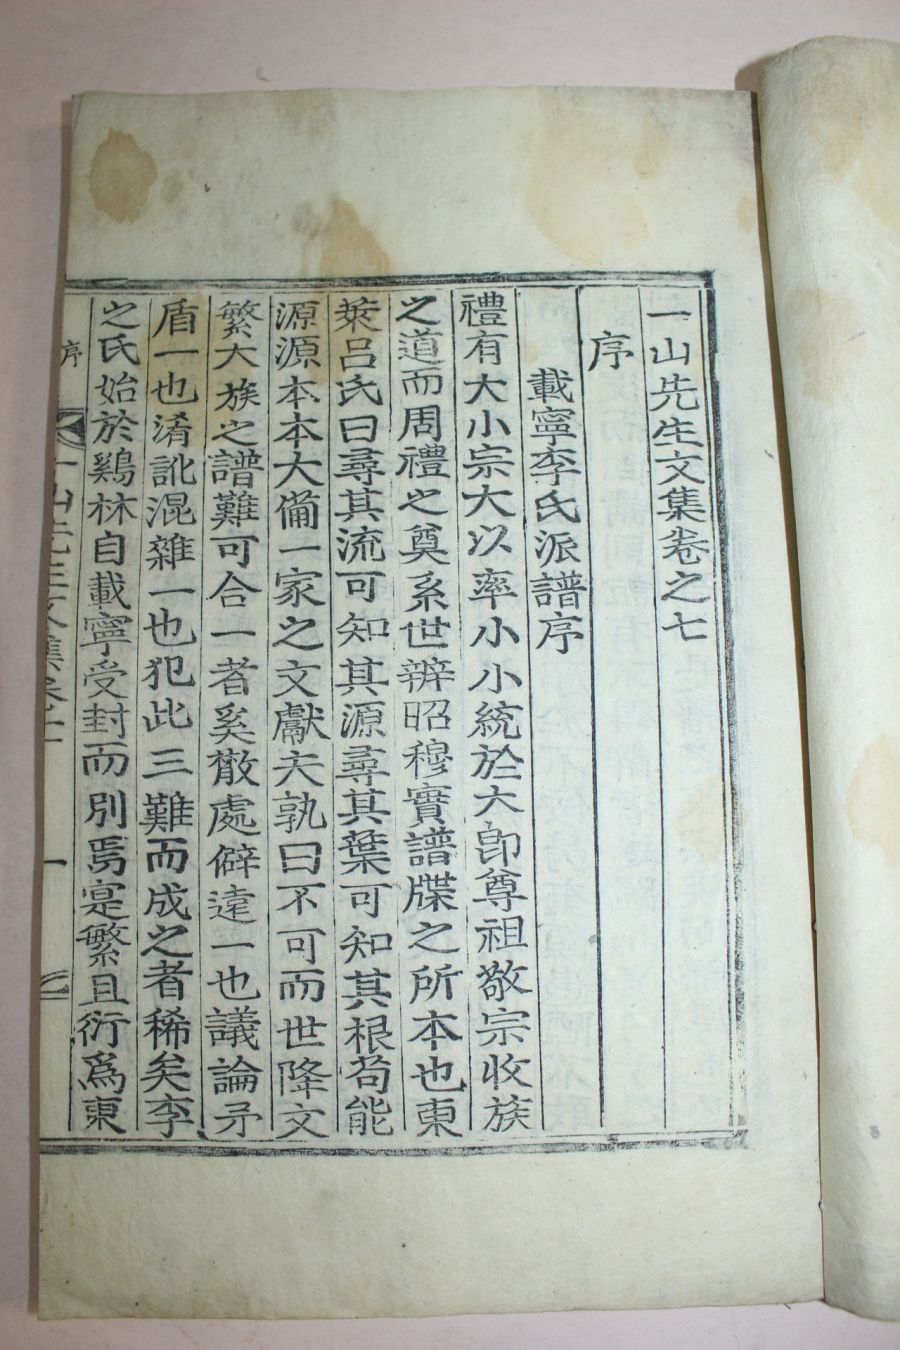 一山先生文集卷之七
序
載寧李氏派譜序
禮有大小宗大以率小小統於大卽尊祖敬宗收族
之道而周禮之奠系世辨昭穆實譜牒之所本也東
萊呂氏曰尋其流可知其源尋其葉可知其根苟能
源源本本大備一家之文獻夫孰曰不可而世降文
繁大族之譜難可合一者奚散處僻遠一也議論矛
盾一也淆訛混雜一也犯此三難而成之者稀矣李
之氏始於鷄林自載寧受封而別焉寔繁且衍爲東
序
一山先生文集卷之七
一